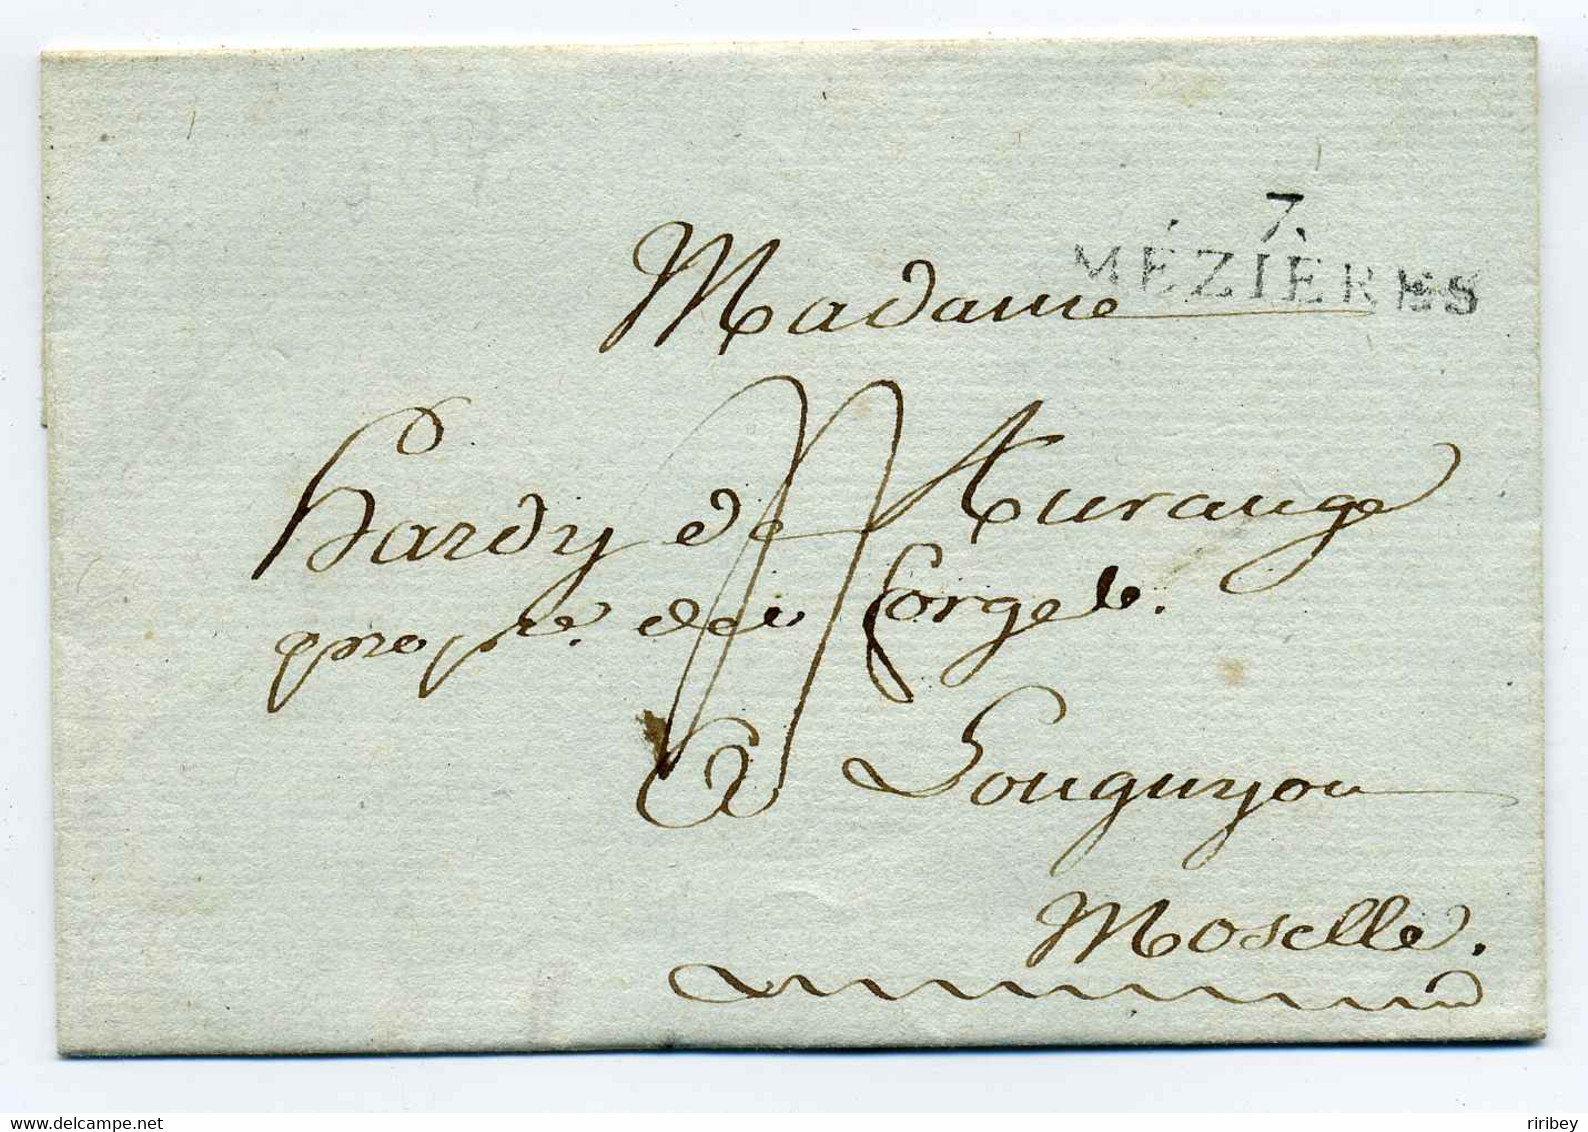 7.
MÉZIÈRES
Madame
hardy de Aurange
propre. des forges.
a Longuyon
Moselle.
www.delcampe.net
riribey